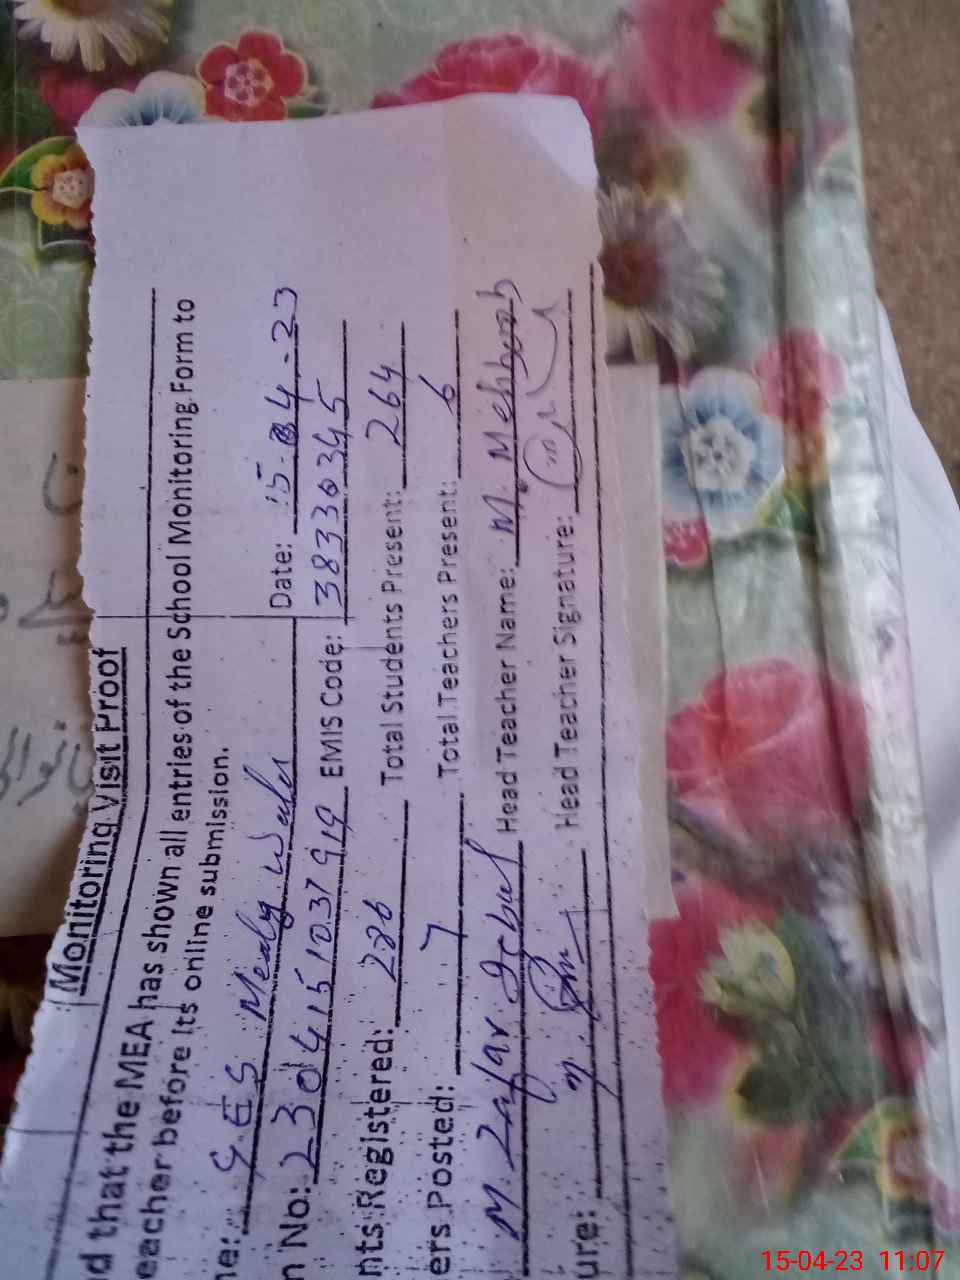 Monitoring Visit Proof
d that the MEA has shown all entries of the School Monitoring Form to
eacher before its online submission.
ne: GES Date: 15-04-23
n No: 2304151037919 EMIS Code: 38330345
nts Registered: 286 Total Students Present: 264
ers Posted: 7 Total Teachers Present: 6
M. Zafar Iqbal Head Teacher Name: M. Mehboob
ure: Head Teacher Signature:
15-04-23 11:07